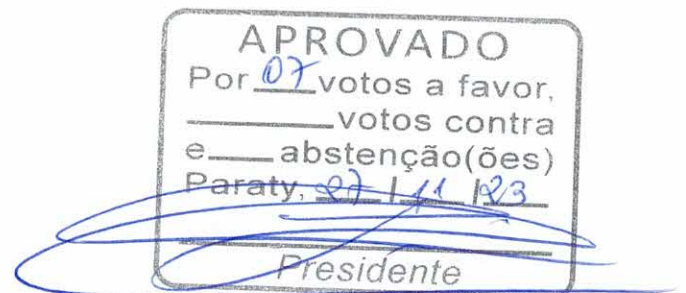 APROVADO
Por 07 votos a favor,
votos contra
e abstenção(ões)
Paraty, 27 / 11 / 23
Presidente